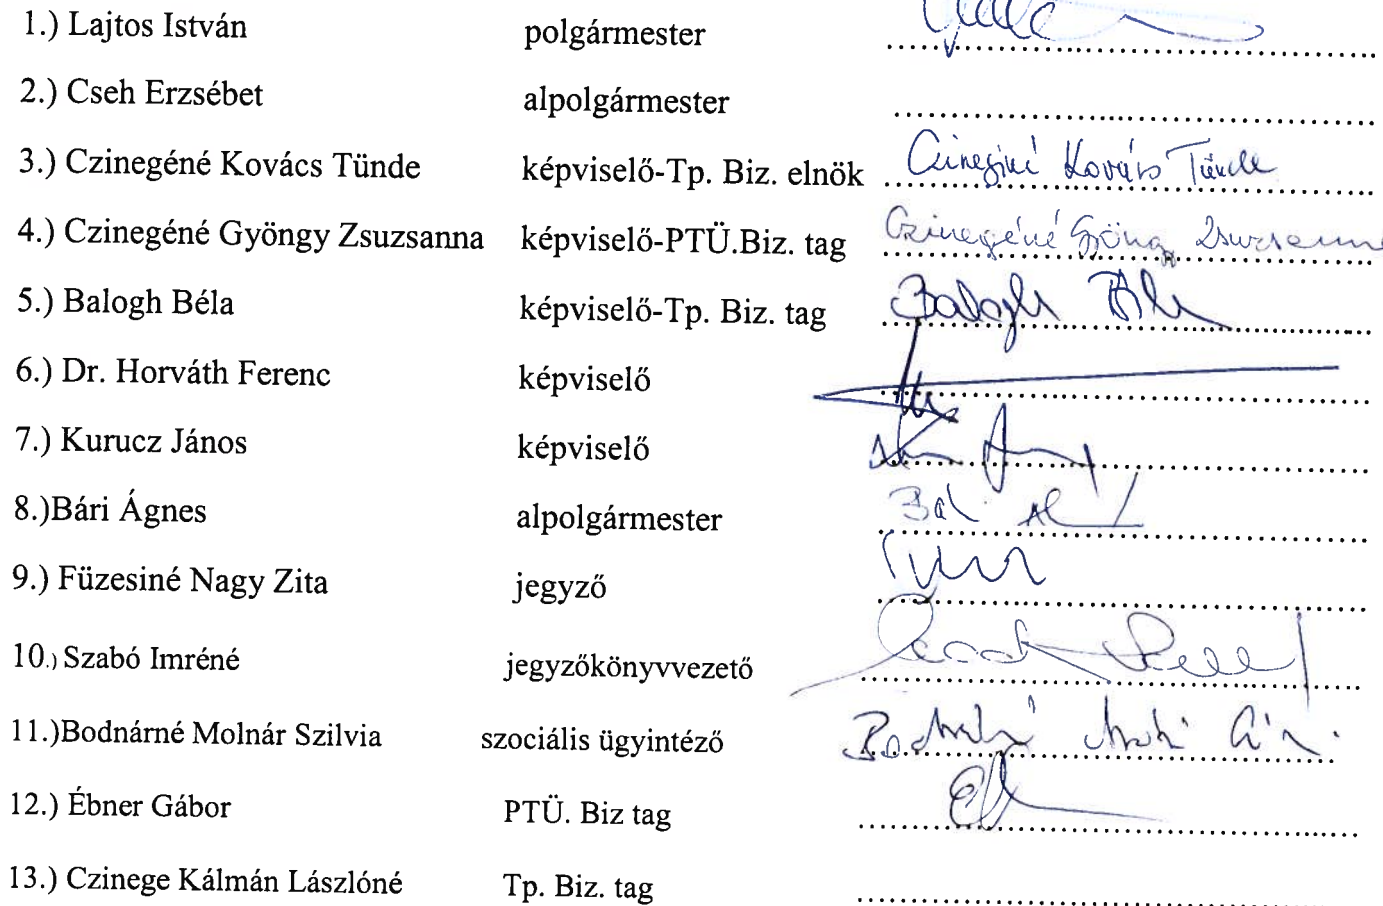 1.) Lajtos István polgármester
2.) Cseh Erzsébet alpolgármester
3.) Czinegéné Kovács Tünde képviselő-Tp. Biz. elnök Czinegéné Kovács Tünde
4.) Czinegéné Gyöngy Zsuzsanna képviselő-PTÜ.Biz. tag Czinegéné Gyöngy Zsuzsanna
5.) Balogh Béla képviselő-Tp. Biz. tag Balogh Béla
6.) Dr. Horváth Ferenc képviselő
7.) Kurucz János képviselő
8.)Bári Ágnes alpolgármester
9.) Füzesiné Nagy Zita jegyző
10.) Szabó Imréné jegyzőkönyvvezető
11.)Bodnárné Molnár Szilvia szociális ügyintéző
12.) Ébner Gábor PTÜ. Biz tag
13.) Czinege Kálmán Lászlóné Tp. Biz. tag